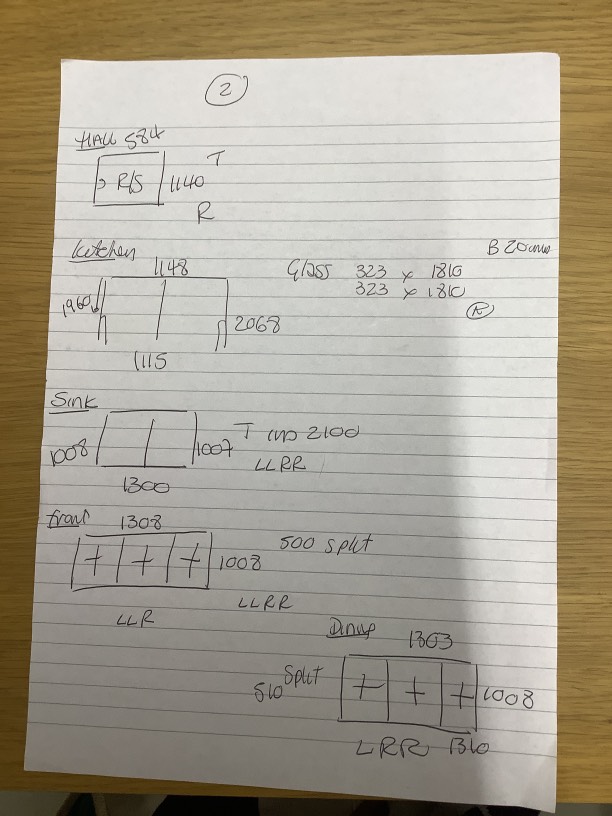 2
HALL 584
R/S 1140 T
R
Kitchen
B 20mm
1148
Glass 323 x 1810
323 x 1810
R
1960
2068
1115
Sink
1008 1007 T 2100
LLRR
1300
front 1308
1008 500 split
LLR LLRR
Dining 1303
510 split 1008
LRR 1310